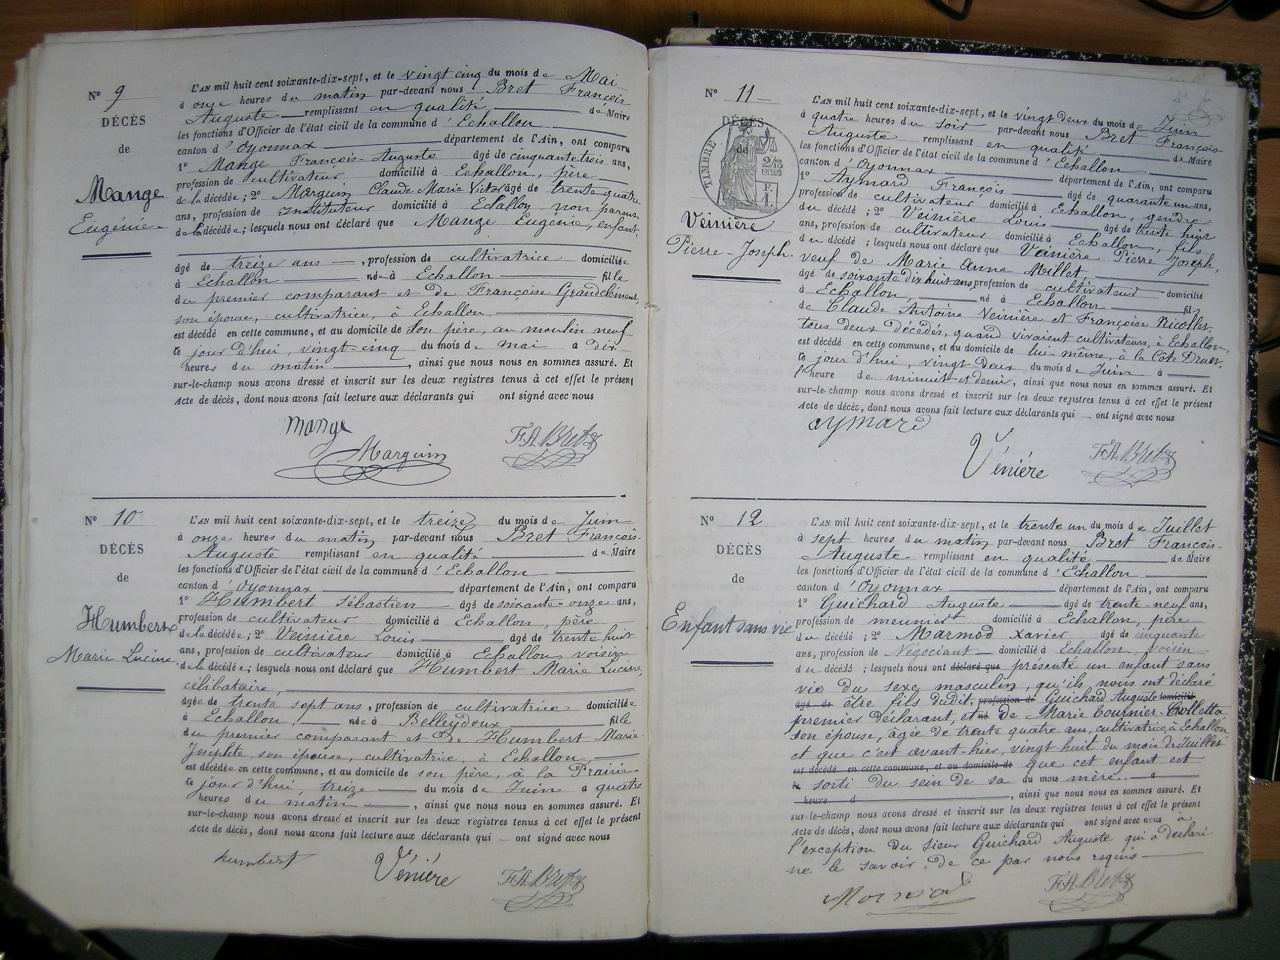 N° 9
DÉCÈS
de
Mange
Eugénie
L'AN mil huit cent soixante-dix-sept, et le vingt cinq du mois de Mai
à onze heures du matin par-devant nous Bret François
Auguste remplissant en qualité de Maire
les fonctions d'Officier de l'état civil de la commune d'Echallon
canton d'Oyonnax département de l'Ain, ont comparu
1° Mange François Auguste âgé de cinquante trois ans,
profession de cultivateur domicilié à Echallon, père
de la décédée; 2° Marguin Claude Marie Victor âgé de trente quatre
ans, profession de Instituteur domicilié à Echallon non parent
de la décédée; lesquels nous ont déclaré que Mange Eugénie, enfant
âgé de treize ans, profession de cultivatrice domiciliée
à Echallon née à Echallon fille
du premier comparant et de Françoise Grandclément,
son épouse, cultivatrice, à Echallon
est décédé en cette commune, et au domicile de son père, au moulin neuf
le jour d'hui, vingt-cinq du mois de mai à dix
heures du matin, ainsi que nous nous en sommes assuré. Et
sur-le-champ nous avons dressé et inscrit sur les deux registres tenus à cet effet le présent
acte de décès, dont nous avons fait lecture aux déclarants qui ont signé avec nous
Mange
Marguin
F.A. Bret
N° 10
DÉCÈS
de
Humbert
Marie Lucine
L'AN mil huit cent soixante-dix-sept, et le treize du mois de Juin
à onze heures du matin par-devant nous Bret François
Auguste remplissant en qualité de Maire
les fonctions d'Officier de l'état civil de la commune d'Echallon
canton d'Oyonnax département de l'Ain, ont comparu
1° Humbert Sébastien âgé de soixante onze ans,
profession de cultivateur domicilié à Echallon, père
de la décédée; 2° Veinière Louis âgé de trente huit
ans, profession de cultivateur domicilié à Echallon voisin
de la décédée; lesquels nous ont déclaré que Humbert Marie Lucine,
célibataire,
âgée de trente sept ans, profession de cultivatrice domiciliée
à Echallon, née à Belleydoux fille
du premier comparant et de Humbert Marie
Josephte son épouse, cultivatrice, à Echallon
est décédée en cette commune, et au domicile de son père, à la Prairie
le jour d'hui, treize du mois de Juin à quatre
heures du matin, ainsi que nous nous en sommes assuré. Et
sur-le-champ nous avons dressé et inscrit sur les deux registres tenus à cet effet le présent
acte de décès, dont nous avons fait lecture aux déclarants qui ont signé avec nous
humbert
Vénière
F.A. Bret
N° 11
DÉCÈS
de
TIMBRE
Veinière
Pierre Joseph
L'AN mil huit cent soixante-dix-sept, et le vingt deux du mois de Juin
à quatre heures du soir par-devant nous Bret François
Auguste remplissant en qualité de Maire
les fonctions d'Officier de l'état civil de la commune d'Echallon
canton d'Oyonnax département de l'Ain, ont comparu
1° Aymard François âgé de quarante un ans,
profession de cultivateur domicilié à Echallon, gendre
du décédé; 2° Veinière Louis âgé de trente huit
ans, profession de cultivateur domicilié à Echallon, fils
du décédé; lesquels nous ont déclaré que Veinière Pierre Joseph,
veuf de Marie Anne Millet
âgé de soixante dix huit ans profession de cultivateur domicilié
à Echallon, né à Echallon fils
de Claude Antoine Veinière et Françoise Nicollet
tous deux décédés, quand vivaient cultivateurs, à Echallon,
est décédé en cette commune, et au domicile de lui même, à la Côte
le jour d'hui, vingt deux du mois de Juin à
l'heure de minuit et demi, ainsi que nous nous en sommes assuré. Et
sur-le-champ nous avons dressé et inscrit sur les deux registres tenus à cet effet le présent
acte de décès, dont nous avons fait lecture aux déclarants qui ont signé avec nous
aymard
Vénière
F.A. Bret
N° 12
DÉCÈS
de
Enfant sans vie
L'AN mil huit cent soixante-dix-sept, et le trente un du mois de Juillet
à sept heures du matin par-devant nous Bret François
Auguste remplissant en qualité de Maire
les fonctions d'Officier de l'état civil de la commune d'Echallon
canton d'Oyonnax département de l'Ain, ont comparu
1° Guichard Auguste âgé de trente neuf ans,
profession de meunier domicilié à Echallon, père
du décédé; 2° Marmod Xavier âgé de cinquante
ans, profession de Négociant domicilié à Echallon, voisin
du décédé; lesquels nous ont déclaré que présenté un enfant sans
vie du sexe masculin, qu'ils nous ont déclaré
âgé de être fils dudit, profession de Guichard Auguste domicilié
premier déclarant, et né de Marie Tournier-Colletta
son épouse, âgée de trente quatre ans, cultivatrice, à Echallon
et que c'est avant-hier, vingt huit du mois de Juillet
est décédé en cette commune, et au domicile de que cet enfant est
le sorti du sein de sa du mois mère. à
heure d, ainsi que nous nous en sommes assuré. Et
sur-le-champ nous avons dressé et inscrit sur les deux registres tenus à cet effet le présent
acte de décès, dont nous avons fait lecture aux déclarants qui ont signé avec nous à
l'exception du sieur Guichard Auguste qui a déclaré
ne le savoir, de ce par nous requis
F.A. Bret